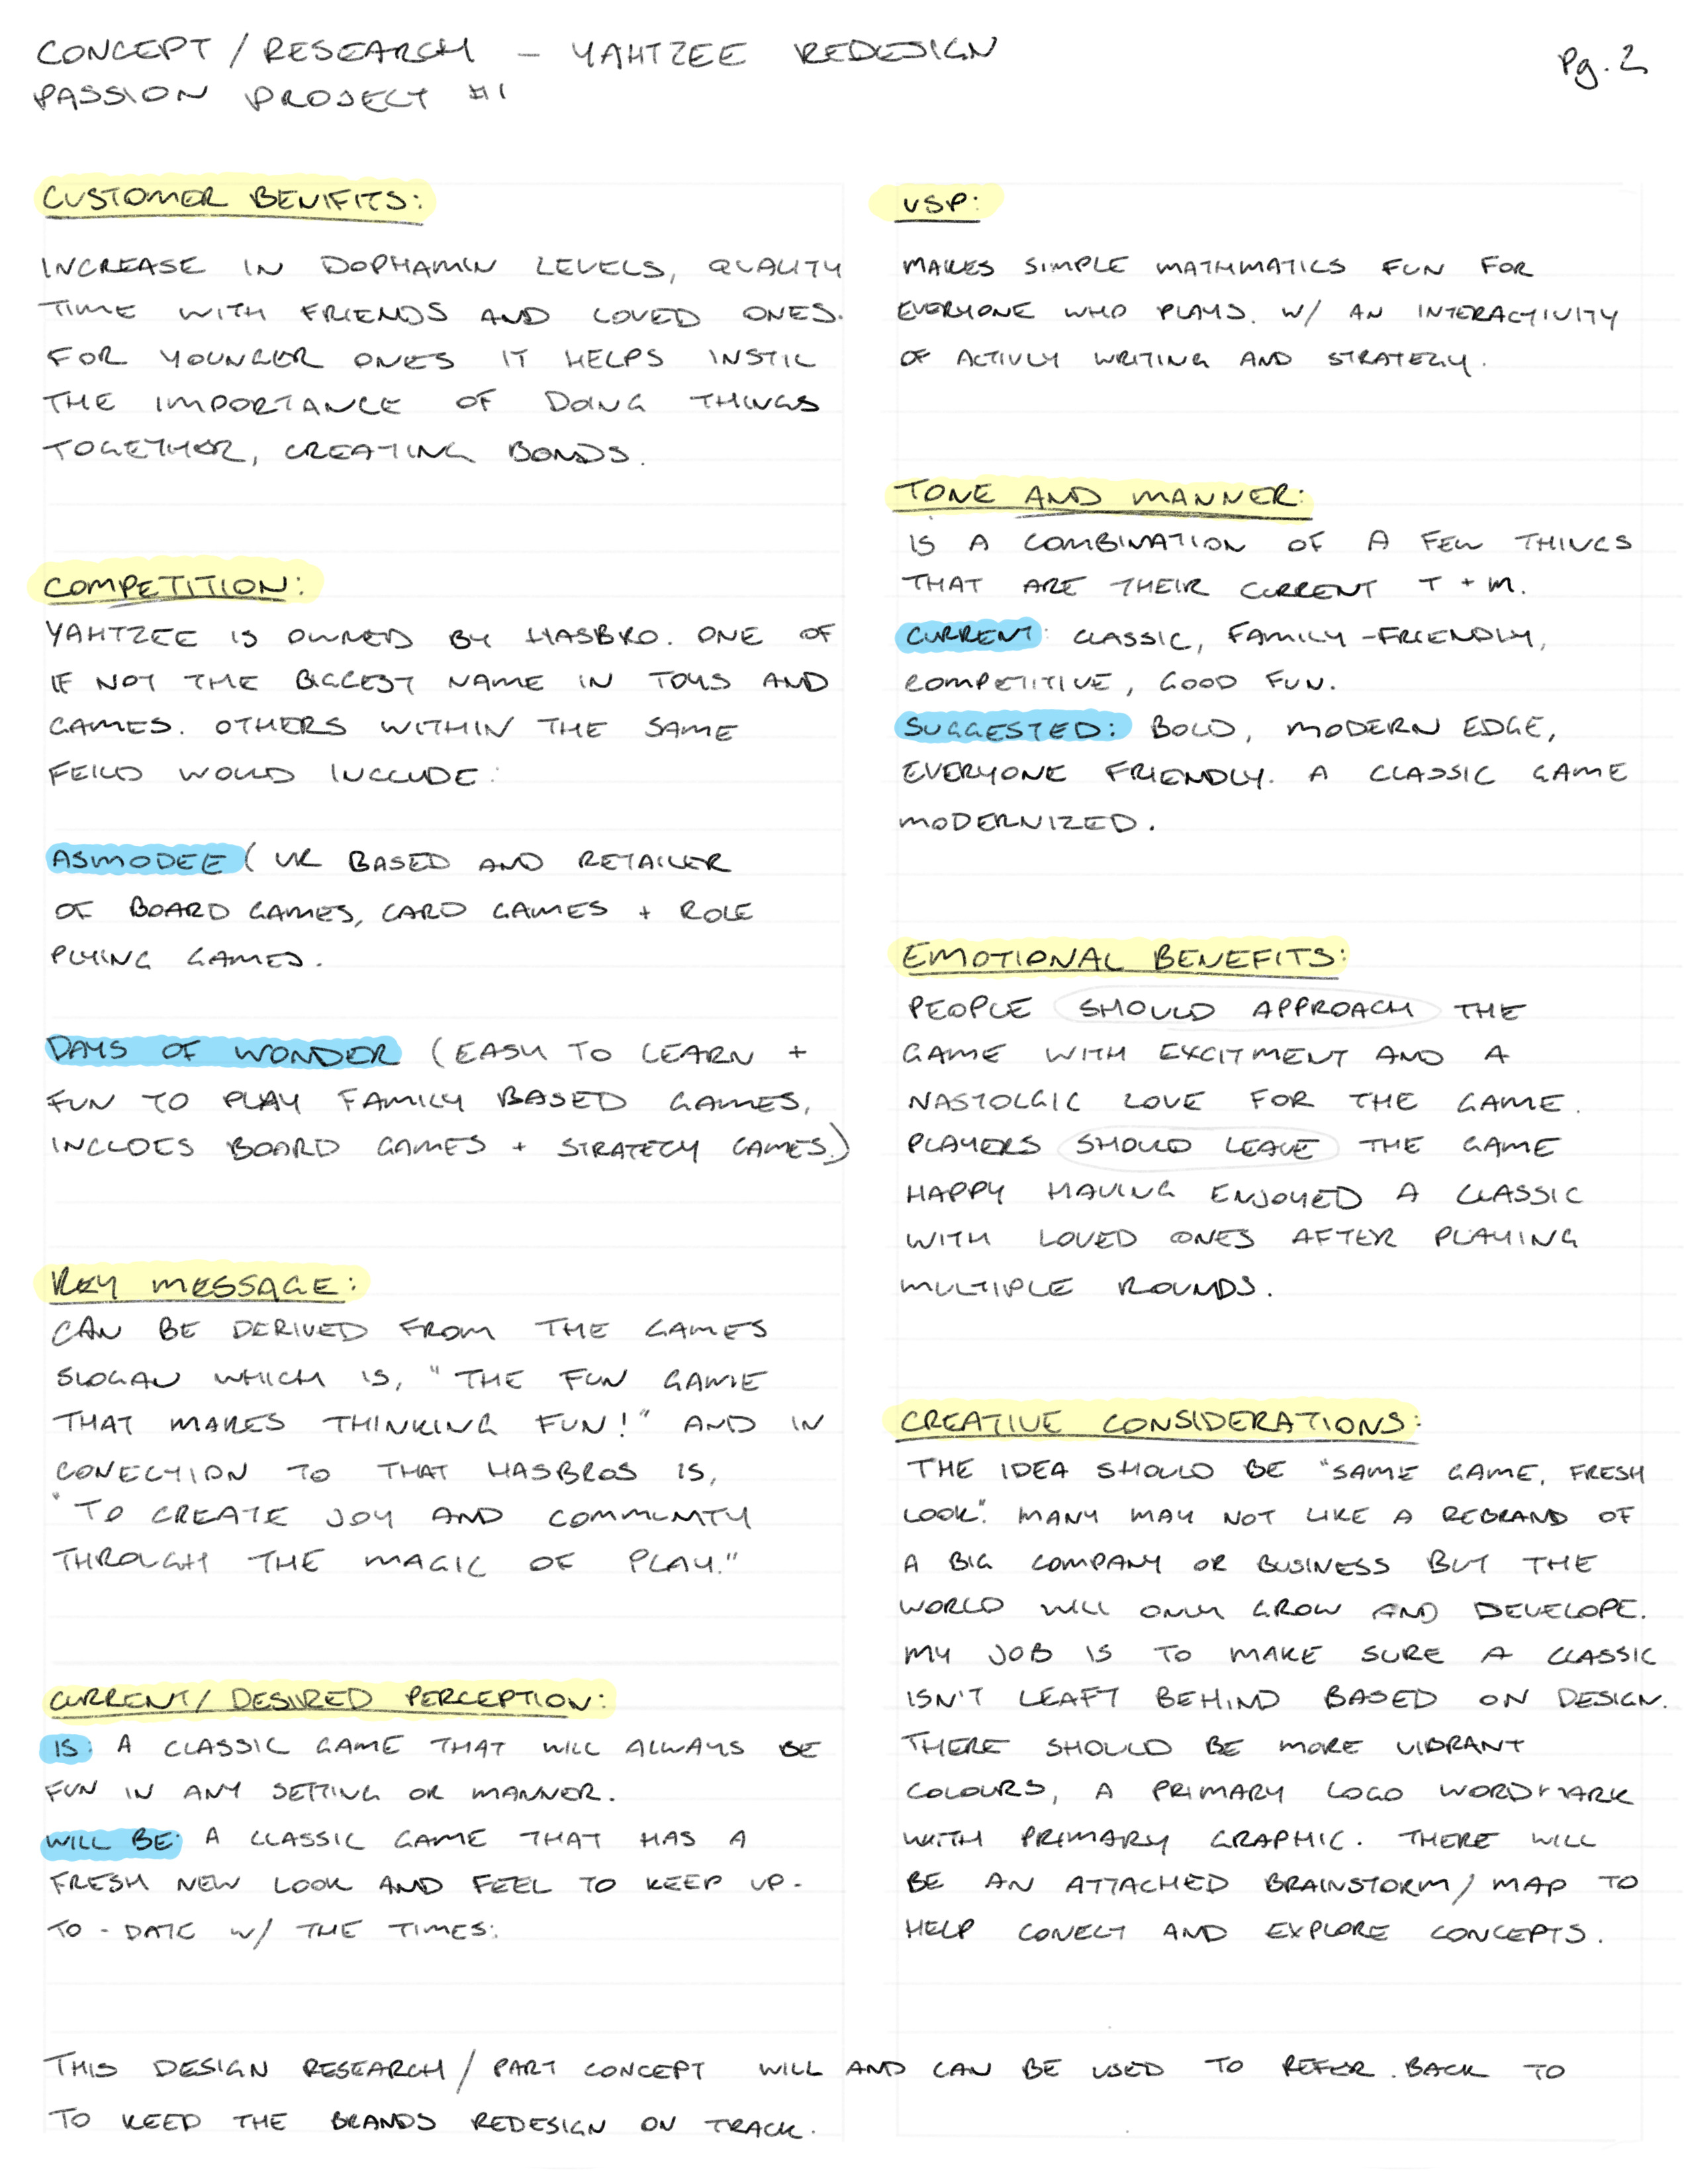 CONCEPT / RESEARCH - YAHTZEE REDESIGN
PASSION PROJECT #1
Pg. 2
CUSTOMER BENIFITS:
INCREASE IN DOPHAMIN LEVELS, QUALITY
TIME WITH FRIENDS AND LOVED ONES.
FOR YOUNGER ONES IT HELPS INSTIL
THE IMPORTANCE OF DOING THINGS
TOGETHER, CREATING BONDS.
COMPETITION:
YAHTZEE IS OWNED BY HASBRO. ONE OF
IF NOT THE BIGGEST NAME IN TOYS AND
GAMES. OTHERS WITHIN THE SAME
FEILD WOULD INCLUDE:
ASMODEE ( UK BASED AND RETAILER
OF BOARD GAMES, CARD GAMES + ROLE
PLYING GAMES.
DAYS OF WONDER (EASY TO LEARN +
FUN TO PLAY FAMILY BASED GAMES,
INCLDES BOARD GAMES + STRATEGY GAMES.)
KEY MESSAGE:
CAN BE DERIVED FROM THE GAMES
SLOGAN WHICH IS, "THE FUN GAME
THAT MAKES THINKING FUN!" AND IN
CONECTION TO THAT HASBROS IS,
"TO CREATE JOY AND COMMUNITY
THROUGH THE MAGIC OF PLAY."
CURRENT/ DESIRED PERCEPTION:
IS: A CLASSIC GAME THAT WILL ALWAYS BE
FUN IN ANY SETTING OR MANNER.
WILL BE: A CLASSIC GAME THAT HAS A
FRESH NEW LOOK AND FEEL TO KEEP UP-
TO-DATE W/ THE TIMES.
USP:
MAKES SIMPLE MATHMATICS FUN FOR
EVERYONE WHO PLAYS. W/ AN INTERACTIVITY
OF ACTIVLY WRITING AND STRATEGY.
TONE AND MANNER:
IS A COMBINATION OF A FEW THINGS
THAT ARE THEIR CURRENT T + M.
CURRENT: CLASSIC, FAMILY-FRIENDLY,
COMPETITIVE, GOOD FUN.
SUGGESTED: BOLD, MODERN EDGE,
EVERYONE FRIENDLY. A CLASSIC GAME
MODERNIZED.
EMOTIONAL BENEFITS:
PEOPLE SHOULD APPROACH THE
GAME WITH EXCITMENT AND A
NASTOLGIC LOVE FOR THE GAME.
PLAYERS SHOULD LEAVE THE GAME
HAPPY HAVING ENJOYED A CLASSIC
WITH LOVED ONES AFTER PLAYING
MULTIPLE ROUNDS.
CREATIVE CONSIDERATIONS:
THE IDEA SHOULD BE "SAME GAME, FRESH
LOOK". MANY MAY NOT LIKE A REBRAND OF
A BIG COMPANY OR BUSINESS BUT THE
WORLD WILL ONLY GROW AND DEVELOPE.
MY JOB IS TO MAKE SURE A CLASSIC
ISN'T LEAFT BEHIND BASED ON DESIGN.
THERE SHOULD BE MORE VIBRANT
COLOURS, A PRIMARY LOGO WORDMARK
WITH PRIMARY GRAPHIC. THERE WILL
BE AN ATTACHED BRAINSTORM/MAP TO
HELP CONECT AND EXPLORE CONCEPTS.
THIS DESIGN RESEARCH / PART CONCEPT WILL AND CAN BE USED TO REFER BACK TO
TO KEEP THE BRANDS REDESIGN ON TRACK.